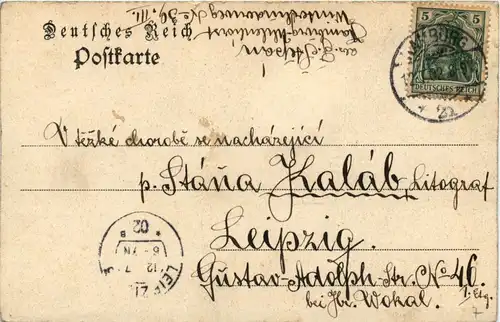 Deutsches Reich
Postkarte
Hamburg-Uhlenhorst
No 36. III.
5
5
DEUTSCHES REICH
V těžké chorobě se nacházející
p. Stáňa Kaláb, Litograf
Leipzig.
Gustav-Adolph-Str. No 46.
1. Etg.
bei Hr. Wokal.
7
LEIPZIG
02